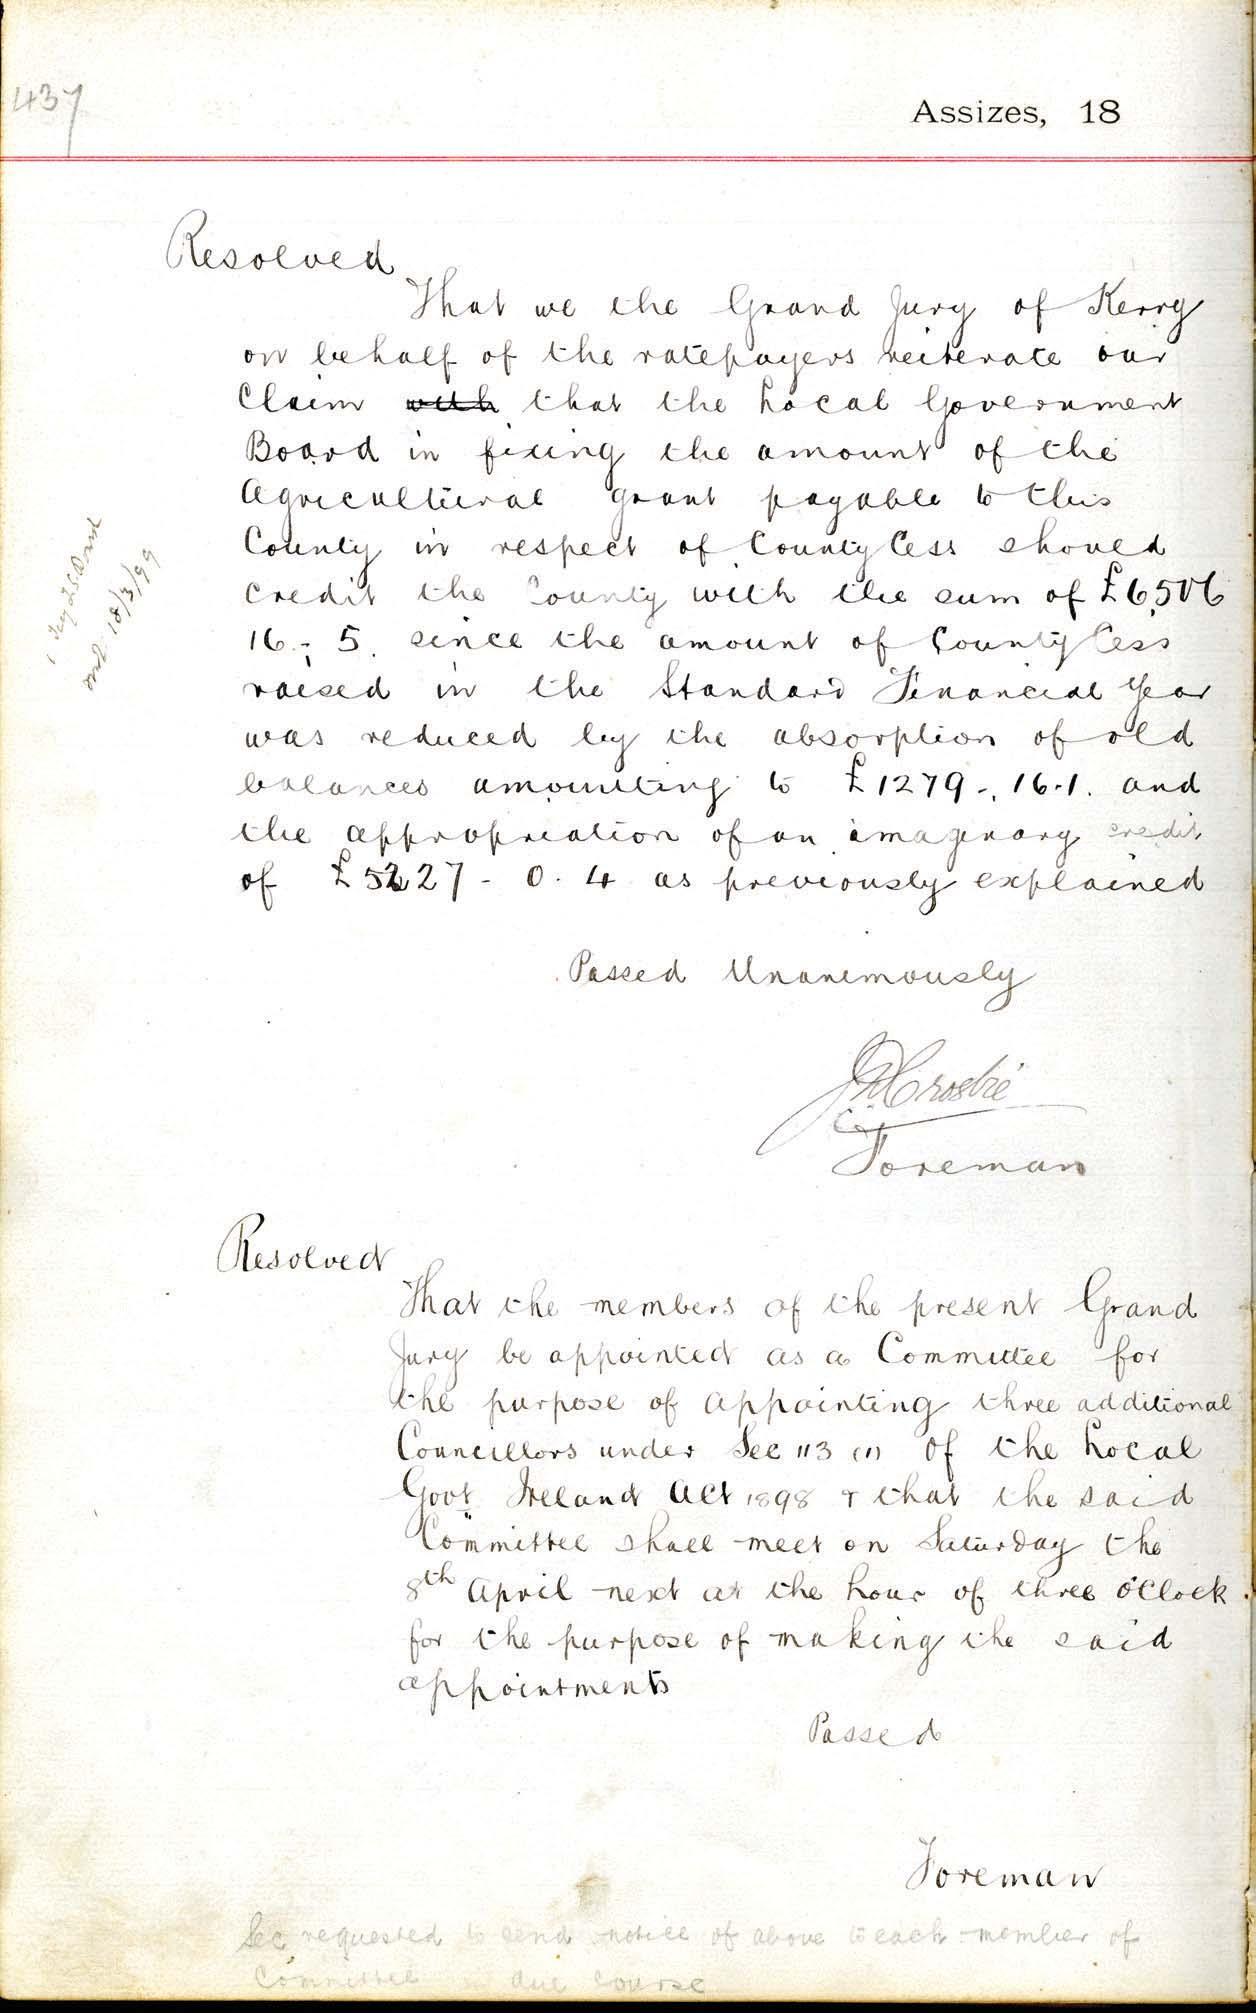 437
Assizes, 18
Resolved
That we the Grand Jury of Kerry
on behalf of the ratepayers reiterate our
claim with that the Local Government
Board in fixing the amount of the
Agricultural grant payable to this
County in respect of County Cess should
credit the County with the sum of £6,506
16 - 5. since the amount of County Cess
raised in the Standard Financial Year
was reduced by the absorption of old
balances amounting to £1279 - 16 - 1. and
the appropriation of an imaginary credit
of £5227 - 0. 4 as previously explained
Passed Unanimously
JDCrosbie
Foreman
18/3/99
Resolved
That the members of the present Grand
Jury be appointed as a Committee for
the purpose of appointing three additional
Councillors under Sec 113 (1) of the Local
Govt Ireland Act 1898 & that the said
Committee shall meet on Saturday the
8th April next at the hour of three o'Clock
for the purpose of making the said
appointments
Passed
Foreman
Sec requested to send notice of above to each member of
Committee in due course